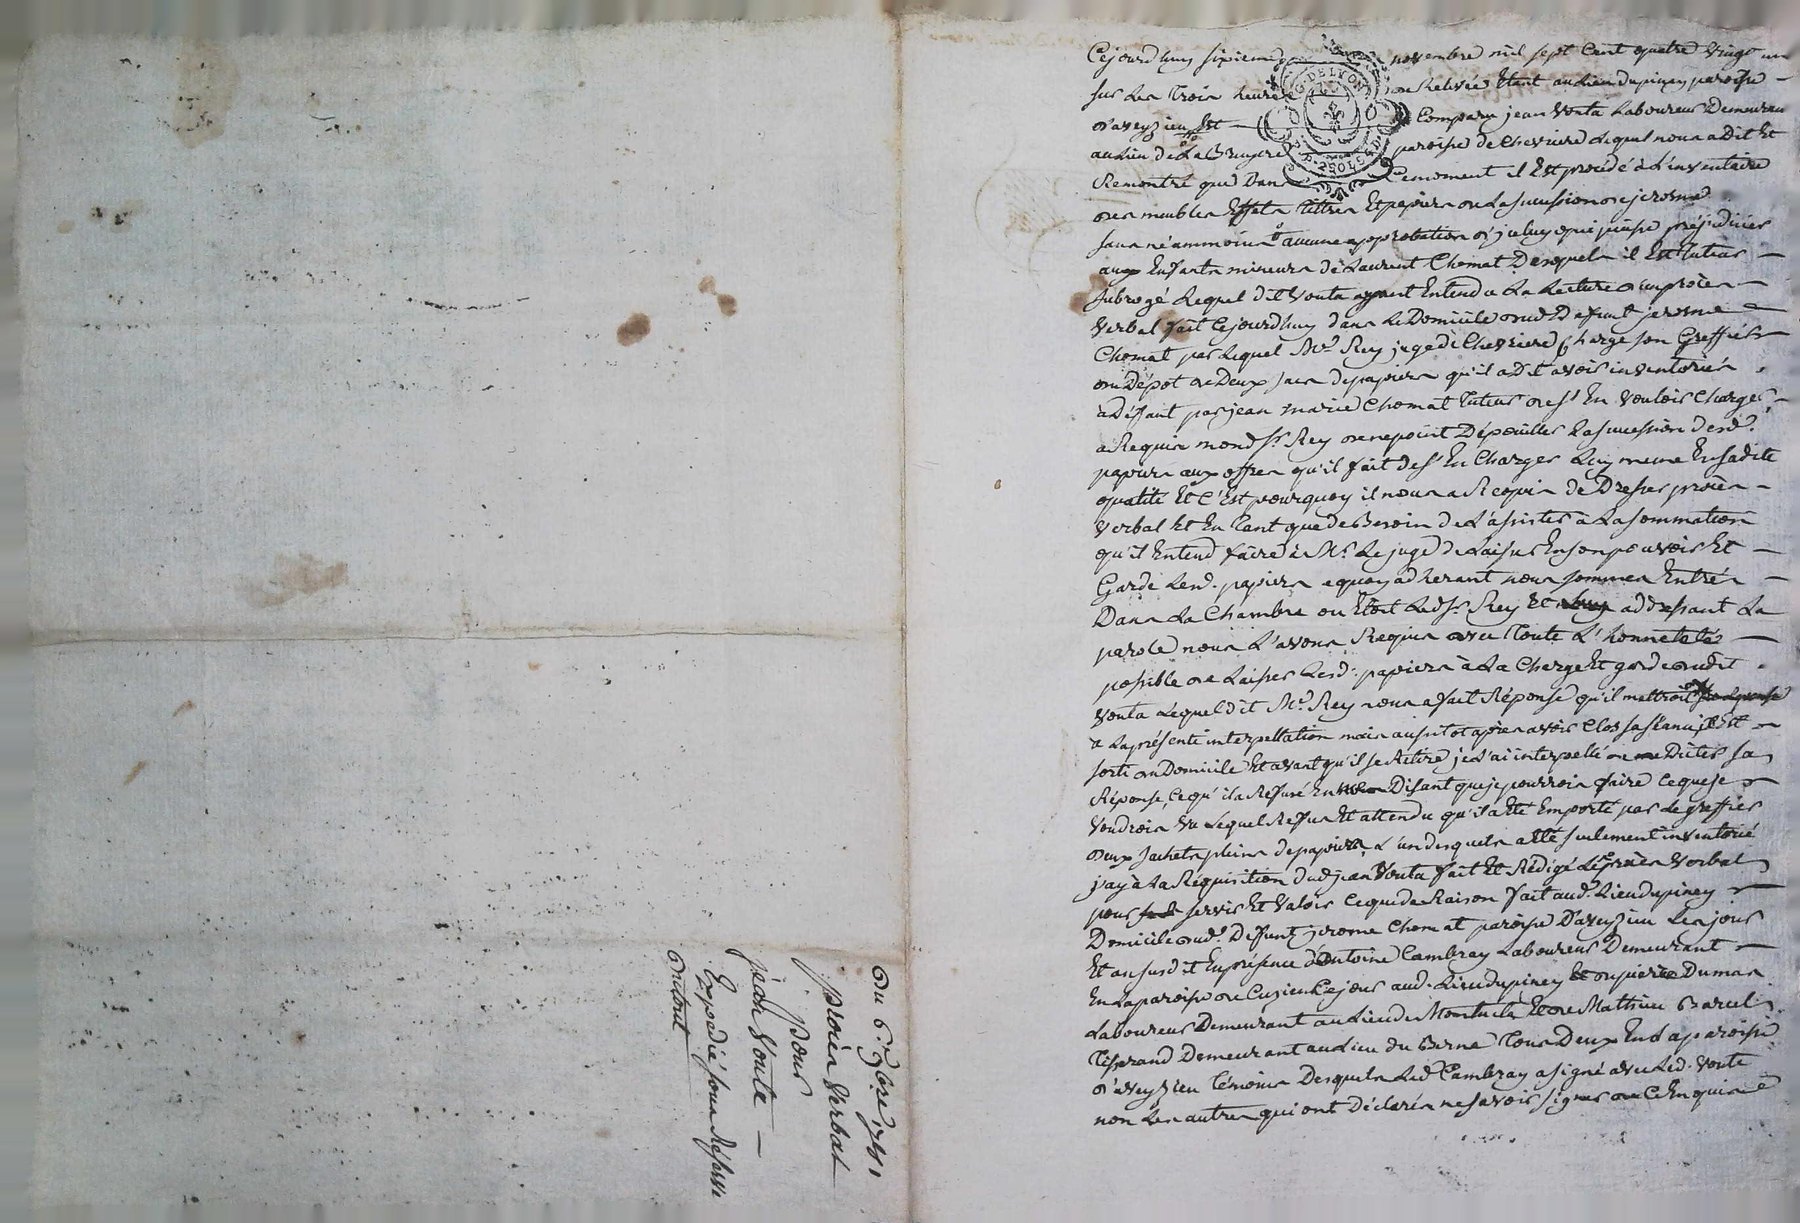 Cejourdhuy sixieme novembre mil sept Cent quatre vingt un
sur les trois heures de Relevée Etant au Lieu dupiney paroisse
d'aveyzieu Est Comparu jean Vonta Laboureur Demeurant
au Lieu de La Bruyere paroisse de Chevriere Lequel nous a Dit Et
Remontré que Dans Cemoment il Est procédé à L'inventaire
des meubles Effets tittres Et papiers de La succession de jerosme
sans néammoins aucune approbation d'jceluy qui puisse préjudicier
aux Enfants mineurs de Laurent Chomat Desquels il Est tuteur
subrogé Lequel dit Vonta ayant Entendu La Lecture du procès
Verbal fait Cejourdhuy dans Le Domicile dud. Defunt jerosme
Chomat par Lequel Mr. Rey juge de Chevriere Charge son Greffier
du Dépot de Deux sacs de papiers qu'il a Dit avoir inventoriés
à Deffaut par jean marie Chomat tuteur de s'En Vouloir Charger
a Requis mond Sr. Rey de ne point Dépouiller La succession desd.
papiers aux offres qu'il fait de s'En Charger Luy meme En sadite
qualité Et C'Est pourquoy il nous a Requis de Dresser procès
Verbal Et En tant que de Besoin de L'assister à La sommation
qu'il Entend faire à Mr. Le juge de Laisser En son pouvoir Et
Garde Lesd. papiers a quoy adherant nous sommes Entrés
Dans La Chambre ou Etoit Led Sr. Rey Et addressant La
parole nous L'avons Requis avec toute L'honneteté
possible de Laisser Lesd. papiers à La Charge Et garde dudit
Vonta Lequel dit Mr. Rey nous a fait Réponse qu'il mettroit
à La présente interpellation mais aussitot après avoir Clos sa séance il Est
sorti du Domicile Et avant qu'il se Retire je L'ai interpellé de Dicter sa
Réponse, Ce qu'il a Refusé En Disant que je pourrois faire Ce que je
Voudrois Vu Lequel Refus Et attendu qu'il a Eté Emporté par Le greffier
deux sachets pleins de papiers L'un desquels a Eté seulement inventorié
j'ay à La Réquisition dud jean Vonta fait Et Rédigé Le procès Verbal
pour servir Et Valoir Ce que de Raison fait aud. Lieu dupiney
Domicile dud. Deffunt jerome Chomat paroisse D'aveyzieu Les jour
Et an susdit En présence d'Antoine Cambray Laboureur Demeurant
En La paroisse de Cuzieu Ce jour aud. Lieu dupiney Et de pierre Dumas
Laboureur Demeurant au Lieu de Montuclas Et de Mathieu Barcel
Tisserand Demeurant au Lieu du Berne tous Deux En La paroisse
d'aveyzieu témoins Desquels Led Cambray a signé avec Led. Vonte
non Les autres qui ont Déclarés ne savoir signer de Ce Enquis
Du 6e. 9bre 1781
procès Verbal
pour
jean Vonte
Expedié sous Réserve
du tout
G. DE LYON